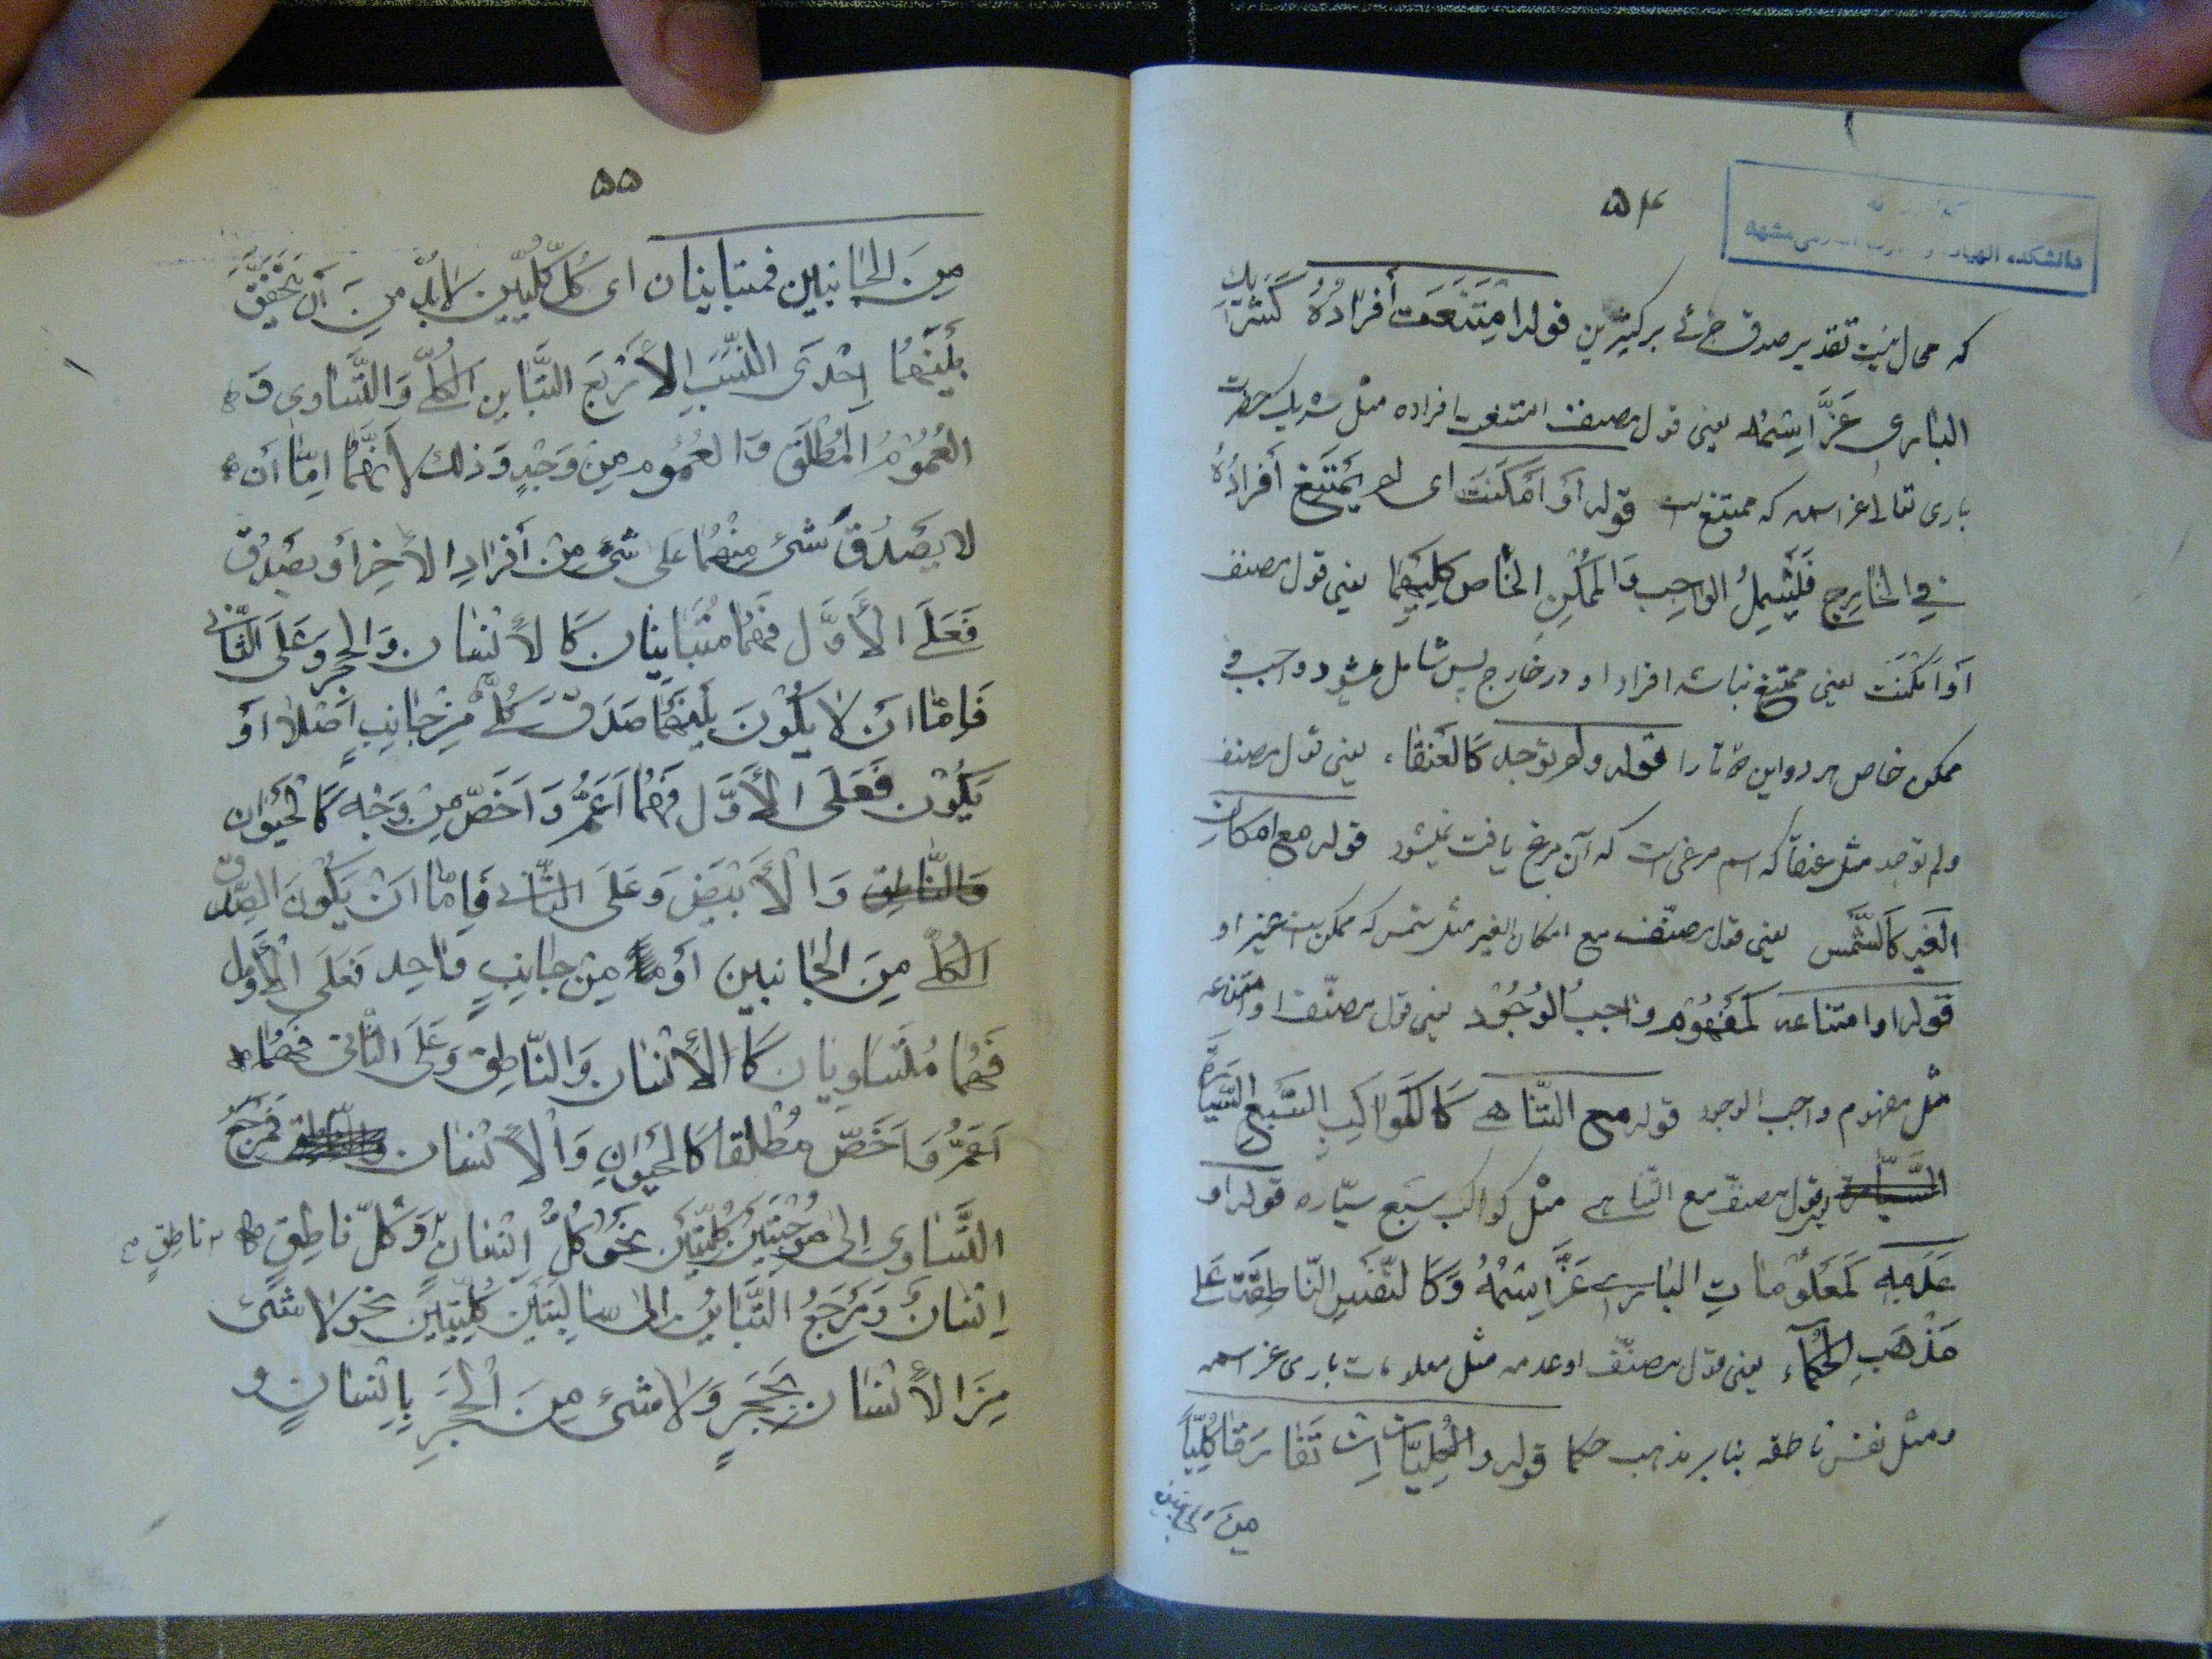 ۵۴
دانشكده الهيات و معارف اسلامى مشهد
كه محال نيست تقدير صدق جزئى بر كثيرين قوله امتَنَعَت أَفرَادُهُ كَشَرِيكِ
البارى عَزَّ اسمُهُ يعنى قول مصنف امتنعت افراده مثل شريك حضرت
بارى تعالى عز اسمه كه ممتنع است قوله أو أَمكَنَت اى لم يَمتَنِع أَفرَادُهُ
فى الخَارِجِ فَيَشمِلُ الواجِب وَالمُمكِنِ الخَاص كِلَيهِما يعنى قول مصنف
أو اَمكَنَت يعنى ممتنع نباشد افراد او در خارج پس شامل ميشود واجب و
ممكن خاص هر دو اين را قوله و لم توجد كَالعَنقاء يعنى قول مصنف
و لم توجد مثل عنقا كه اسم مرغى است كه آن مرغ يافت نميشود قوله مع امكانِ
الغَير كَالشَّمس يعنى قول مصنّف مع امكان الغير مثل شمس كه ممكن است غير او
قوله او امتناعه كمَفهُومِ واجبُ الوُجُود يعنى قول مصنّف او امتناعه
مثل مفهوم واجب الوجود قوله مع التناهى كَالكَواكِبِ السَّبعِ السَّيَّارَة
السَّيّارة يعنى قول مصنف مع التناهى مثل كواكب سبع سيّاره قوله او
عَدَمِهِ كمَعلُومَاتِ البارى عَزَّ اسمُهُ وَكَالنَّفسِ النّاطِقَةِ عَلى
مَذهَبِ الحُكَماء يعنى قول مصنّف او عدمه مثل معلومات بارى عز اسمه
و مثل نفس ناطقه بنا بر مذهب حكما قوله و الكُلِيَّات اِن تَفَارَقا كُلِيّاً
مِنَ الجانبين
۵۵
مِنَ الجانبين فمتباينان اى كُلّ كُلّيَّين لابُدَّ مِن أَن يَتَحَقَّق
بَينَهُما اِحدَى النِّسَبِ الأَربَع التَّبَاين الكُلّى وَالتَّساوى وَ
العُمُومُ المُطلَق وَالعُمُوم مِن وَجهٍ وَ ذلك لأَنَّهُما اِمّا أن
لا يَصدُق شَئ مِنهُما عَلى شئ مِن أَفرَادِ الأخِر أو يَصدُق
فَعَلَى الأَوَّل فَهُما مُتَبَاينان كَالأنسَان وَالحجر وَعَلَى الثّانى
فَاِمّا اَن لا يَكُونَ بَينَهُما صَدق كُلّى مِن جانِبٍ اَصلاً اَو
يَكُون فَعَلَى الأَوَّل فَهُما اَعَمُّ وَ اَخَصّ مِن وَجه كَالحَيَوان
وَالنّاطِق وَالأَبيَض وَ عَلَى الثّانى فَاِمّا اَن يَكُونَ الصِّدق
الكُلّى مِنَ الجانبين أو مِن جانِبٍ واحِد فَعَلَى الأوّل
فَهُما مُتَساويان كَالأنسان وَالنّاطِق وَعَلَى الثّانى فَهُما
اَعَمُّ وَ اَخَصّ مُطلقا كَالحَيَوانِ وَالأنسان فَمَرجَعُ
التَّساوى اِلى مُوجَبَتَين كُلِيَّتَين نحو كُلُّ اِنسانٍ وَ كُلّ ناطِقٍ
ناطِقٍ
اِنسَانٌ وَ مَرجَعُ التَّبايُن اِلى سالِبَتَين كُلِيَّتَين نحو لا شئ
مِنَ الأنسان بِحَجَرٍ وَلا شئ مِنَ الحَجَرِ بِاِنسَانٍ وَ